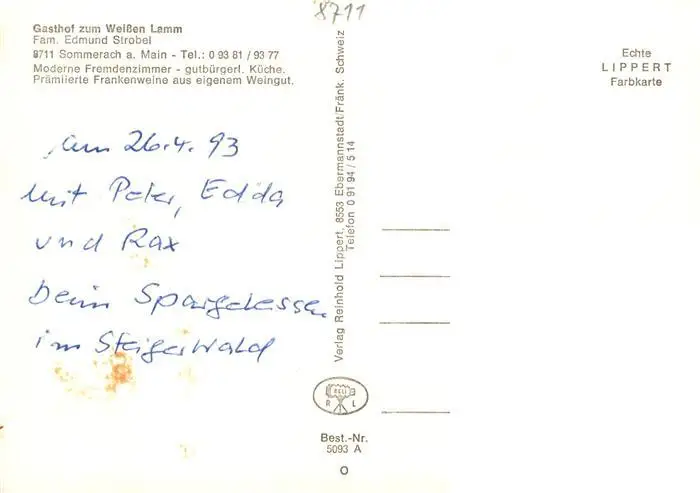 8711
Gasthof zum Weißen Lamm
Fam. Edmund Strobel
8711 Sommerach a. Main - Tel.: 0 93 81 / 93 77
Moderne Fremdenzimmer - gutbürgerl. Küche.
Prämiierte Frankenweine aus eigenem Weingut.
am 26.4.93
Mit Peter, Edda
und Rax
beim Spargelessen
im Steigerwald
Verlag Reinhold Lippert, 8553 Ebermannstadt/Fränk. Schweiz
Telefon 0 91 94 / 5 14
Echte
LIPPERT
Farbkarte
RELI
R L
Best.-Nr.
5093 A
O